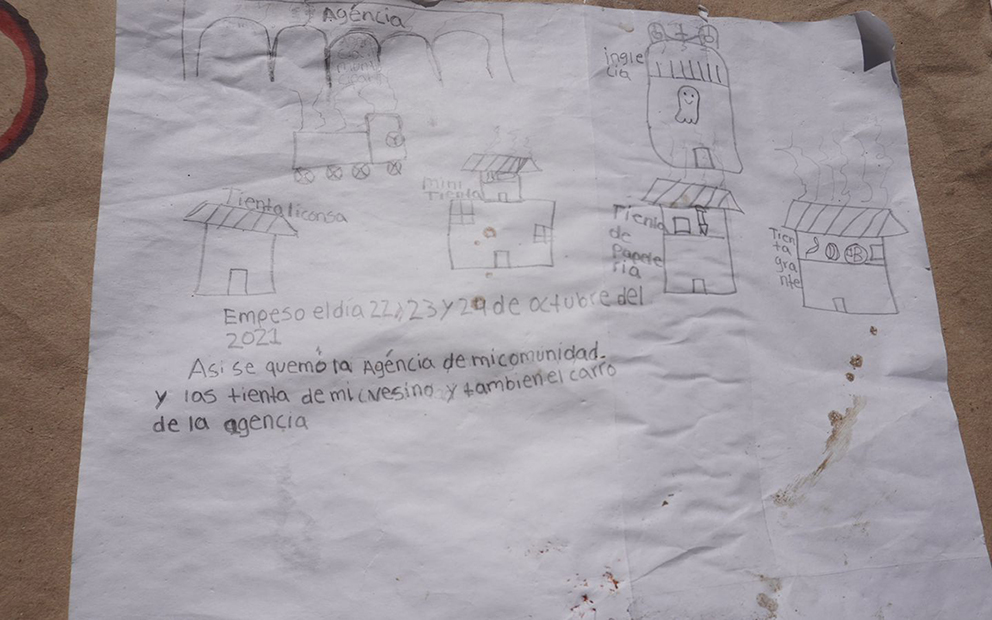 Agéncia
ingle
cia
Tienta liconsa
mini
Tienta
Tienta
de
Papele
ria
Tien
ta
gra
nte
Empeso el día 22, 23 y 24 de octubre del
2021
Asi se quemó la Agéncia de mi comunidad.
y las tienta de mi vesino y tambien el carro
de la agencia